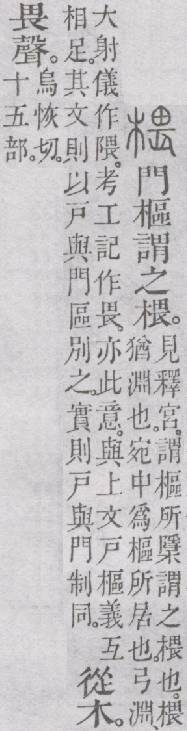 椳門樞謂之椳。見釋宮。謂樞所㮆謂之椳也。椳
猶淵也。宛中爲樞所居也。弓淵
大射儀作隈。考工記作畏。亦此意。與上文戶樞義互
相足。其文則以戶與門區別之。實則戶與門制同。
從木。
畏聲。烏恢切。
十五部。